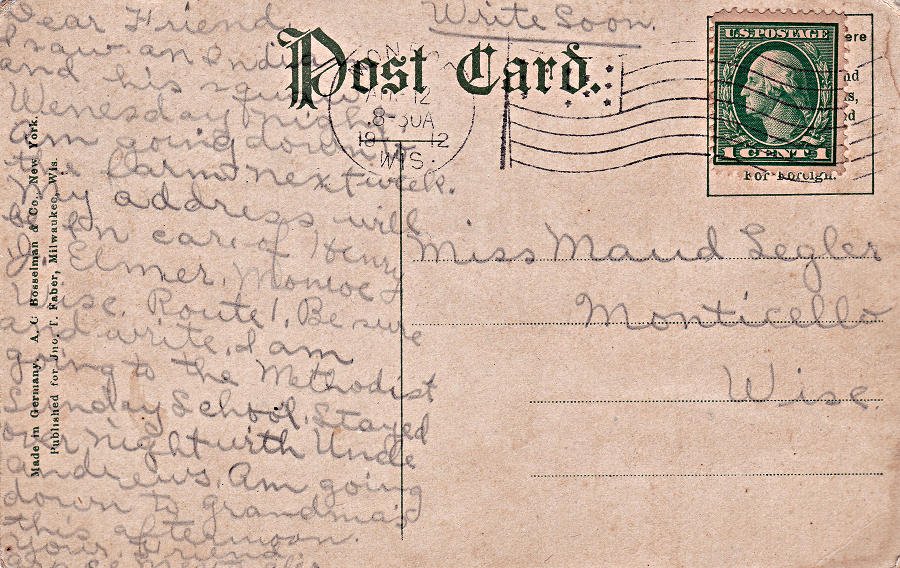 Write Soon.
Post Card.
U.S. POSTAGE
1 CENT 1
For Foreign.
8-30A
12
WIS.
Dear Friend,
I saw an India
and his squaw
Wenesday night
am going down
farm next week.
my address will
be in care of Henry
J. Elmer, Monroe
Wisc. Route 1, Be sure
and write. I am
going to the Methodist
Sunday School, Stayed
over night with Uncle
Andrews Am going
down to grandma's
this afternoon.
Your Friend
Miss Maud Legler
Monticello
Wisc.
Made in Germany. A. C. Bosselman & Co., New York.
Published for Jno. T. Faber, Milwaukee, Wis.